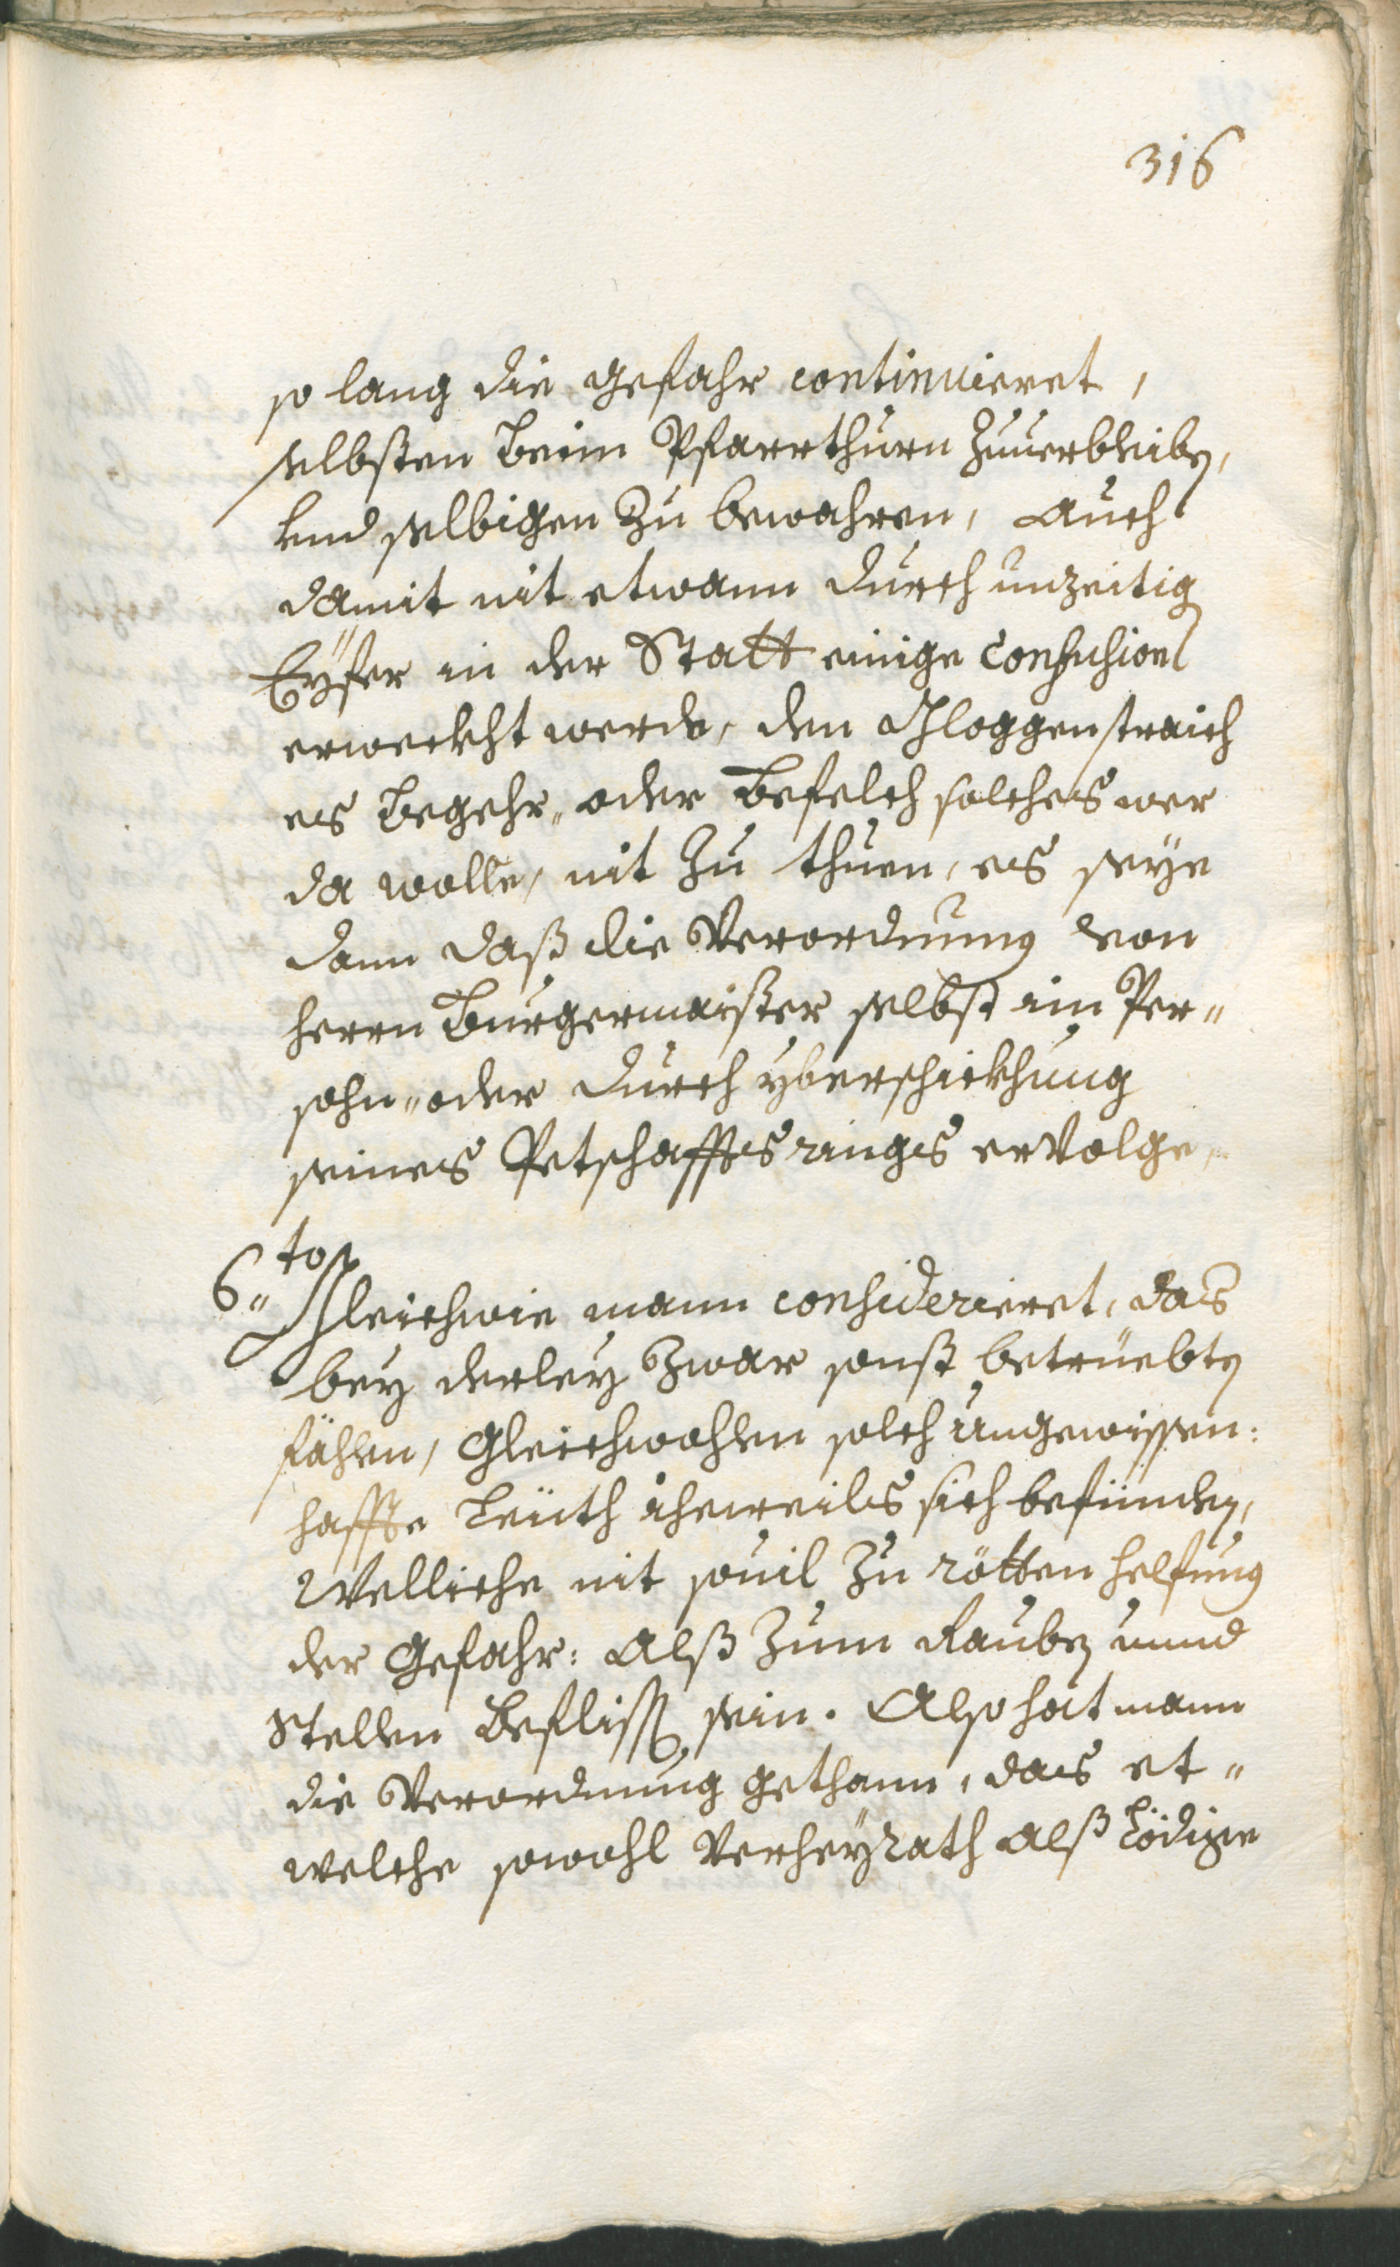 316
so lang die gefahr continuieret,
selbsten beim Pfarrthurn zuuerbleiben,
vnd selbigen zu bewahren, auch
damit nit etwann durch unzeitig
Eÿfer in der Statt einige Confusion
erweckht werde, den Gloggenstraich
es begehr„ oder befelch solches wer
da wolle, nit zu thuen, es seye
dann daß die Verordnung von
herrn Burgermaister selbst im Per„
sohn„ oder durch yberschickhung
seines Petschafftsrings ervolge,
6„to Gleichwie mann considerieret, das
bey derley zwar sonst betrüebten
fählen, Gleichwohlen solch ungewissen:
haffte Leüth iheweils sich befünden,
Welliche nit souil zu rötten helfung
der Gefahr: alß zum Rauben unnd
Stellen beflissen sein. Also hat mann
die Verordnung gethann, das et„
welche sowohl Verheÿrath alß Lödige